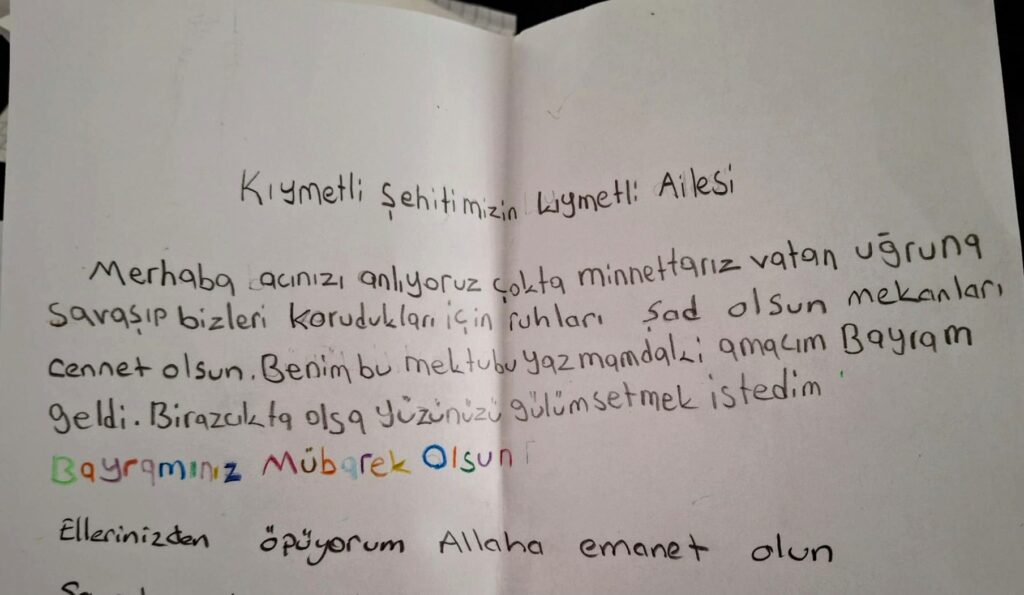 Kıymetli Şehitimizin kıymetli Ailesi
Merhaba acınızı anlıyoruz çokta minnettarız vatan uğruna
savaşıp bizleri korudukları için ruhları şad olsun mekanları
cennet olsun. Benim bu mektubu yazmamdaki amacım Bayram
geldi. Birazcıkta olsa yüzünüzü gülümsetmek istedim
Bayramınız Mübarek Olsun
Ellerinizden öpüyorum Allaha emanet olun